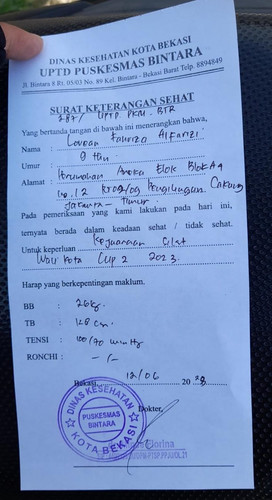 DINAS KESEHATAN KOTA BEKASI
UPTD PUSKESMAS BINTARA
Jl. Bintara 8 Rt. 05/03 No. 89 Kel. Bintara - Bekasi Barat Telp. 8894849
SURAT KETERANGAN SEHAT
287/ UPTD. PKM. BTR
Yang bertanda tangan di bawah ini menerangkan bahwa,
Nama : Alfarizi
Umur : 9 thn
Alamat : Aneka Elok Blok A9
No. 12 Cakung
Jakarta - Timur
Pada pemeriksaan yang kami lakukan pada hari ini,
ternyata berada dalam keadaan sehat / tidak sehat.
Untuk keperluan : Kejuaraan Silat
Wali Kota Cup 2 2023
Harap yang berkepentingan maklum.
BB : 26 kg
TB : 128 cm
TENSI : 100/70 mmHg
RONCHI : -/-
Bekasi, 12/06 2023
Dokter,
DINAS KESEHATAN
PUSKESMAS
BINTARA
KOTA BEKASI
Dorina